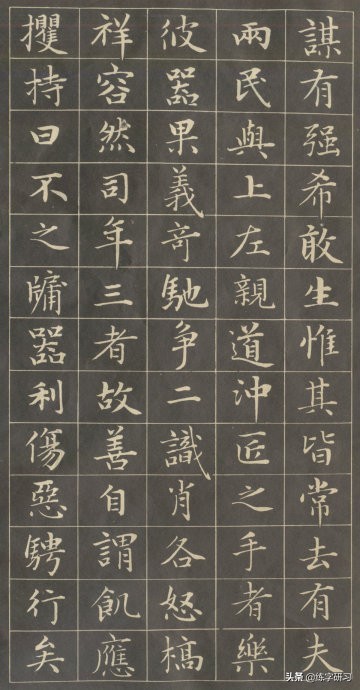 謀有强希敢生惟其皆常去有夫
兩民與上左親道沖匠之手者樂
彼器果義奇馳争二識肖各怒槁
祥容然司年三者故善自謂飢應
攫持曰不之牗器利傷惡騁行矣
头条@练字研习